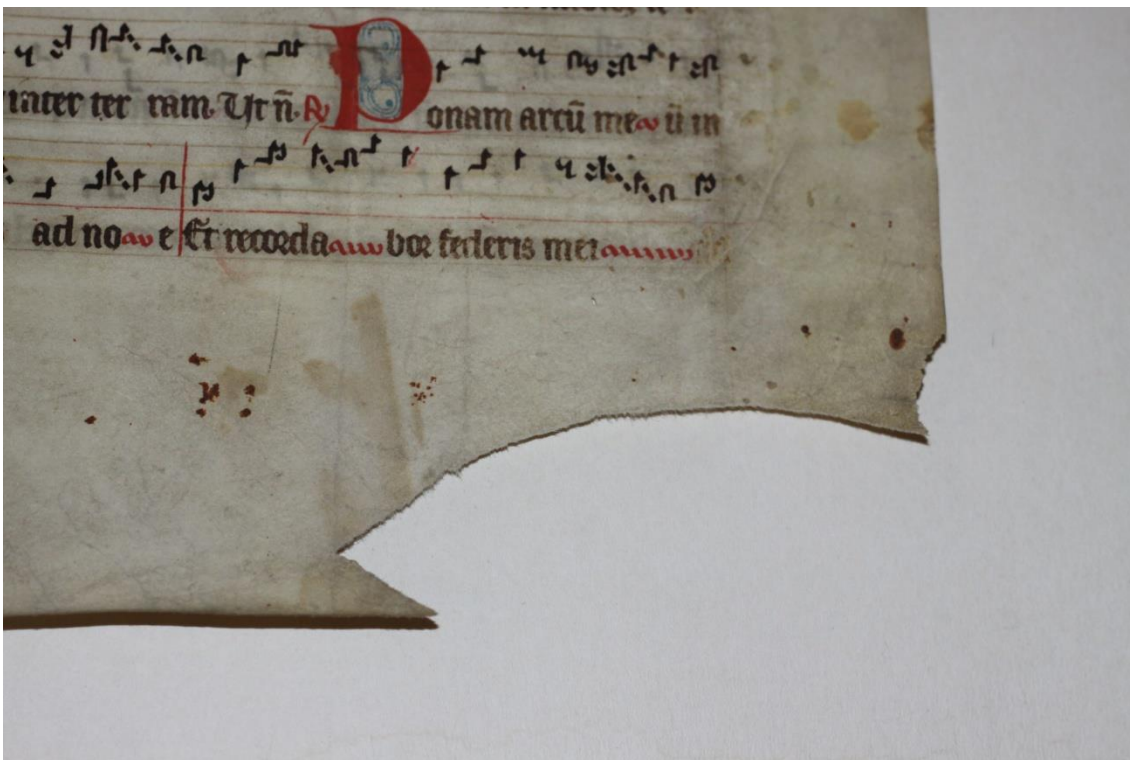 inter ter ram Ut n̄ ℟ Ponam arcū me ū in
ad no e Et recorda bor federis mei